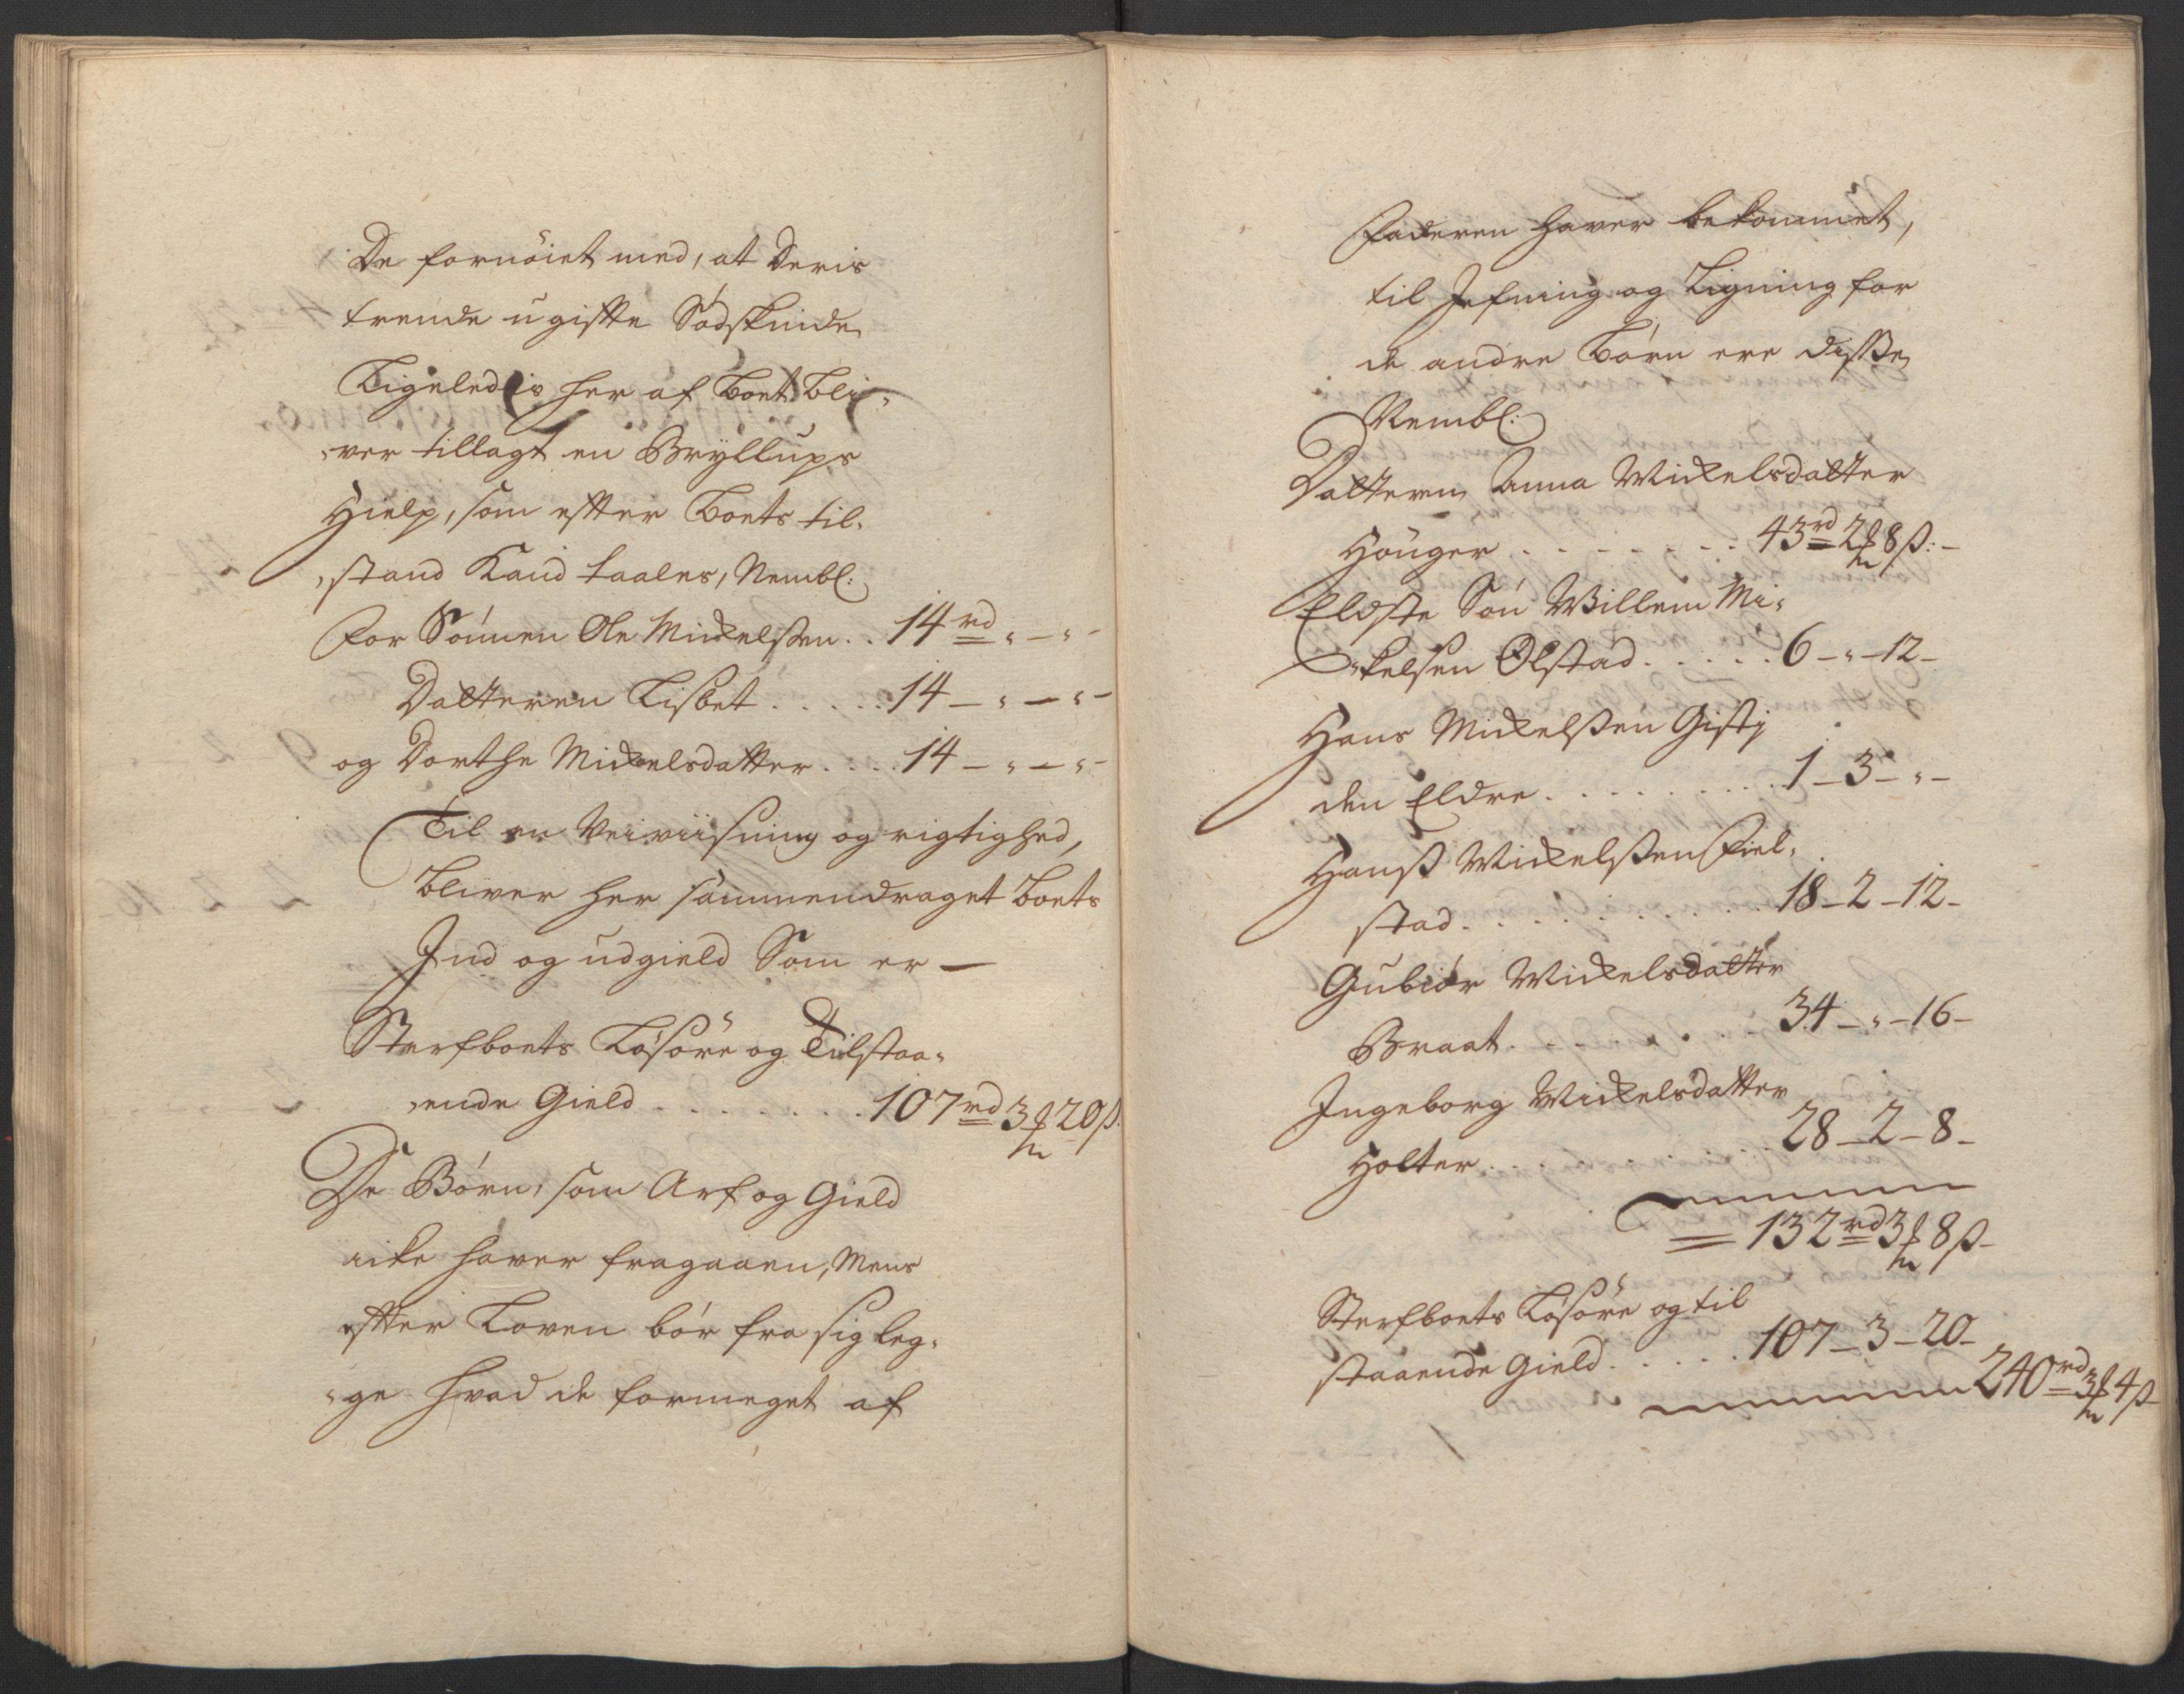 De fornöiet med, at Deris
trende ugiftte Södskinde
Ligeledis her af Boet bli-
-ver tillagt en Bryllups
Hielp, som efter Boets til-
-stand Kand taales, Nembl:
For Sönnen Ole Mickelßen . . 14 rd „ – „ –
Datteren Lisbet . . . . . 14 – „ – „ –
og Dorthe Mickelsdatter . . . . 14 – „ – „ –
Til en Veiviisning og rigtighed,
bliver her sammendraget Boets
Ind og udgield Som er —
Sterfboets Lösöre og Tilstaa-
-ende Gield . . . . . . . 107 rd 3 ƒ 20 ß.
De Börn, som Arf og Gield
icke haver fragaaen, Mens
efter Loven bör fra sig leg-
-ge hvad de formeget af
Faderen haver bekommet,
til Jefning og Ligning for
de andre Börn ere diße
Nembl:
Datteren Anna Mickelsdatter
Houger . . . . . . . . 43 rd 2 ƒ 8 ß: –
Eldste Sön Willem Mi-
-kelsen Olstad . . . . . 6 – „ – 12 –
Hans Mickelßen Gisti
den Eldre . . . . . . . . . 1 – 3 – „ –
Hanß Mickelßen Fiel-
stad . . . . . . . . . . 18 – 2 – 12 –
Gubiör Mickelsdatter
Braat . . . . . . . 34 – „ – 16 –
Ingeborg Mickelsdatter
Holter . . . . . . . . 28 – 2 – 8 –
= 132 rd 3 ƒ 8 ß –
Sterfboets Lösöre og til
staaende Gield . . . . . 107 – 3 – 20 –
240 rd 3 ƒ 4 ß –